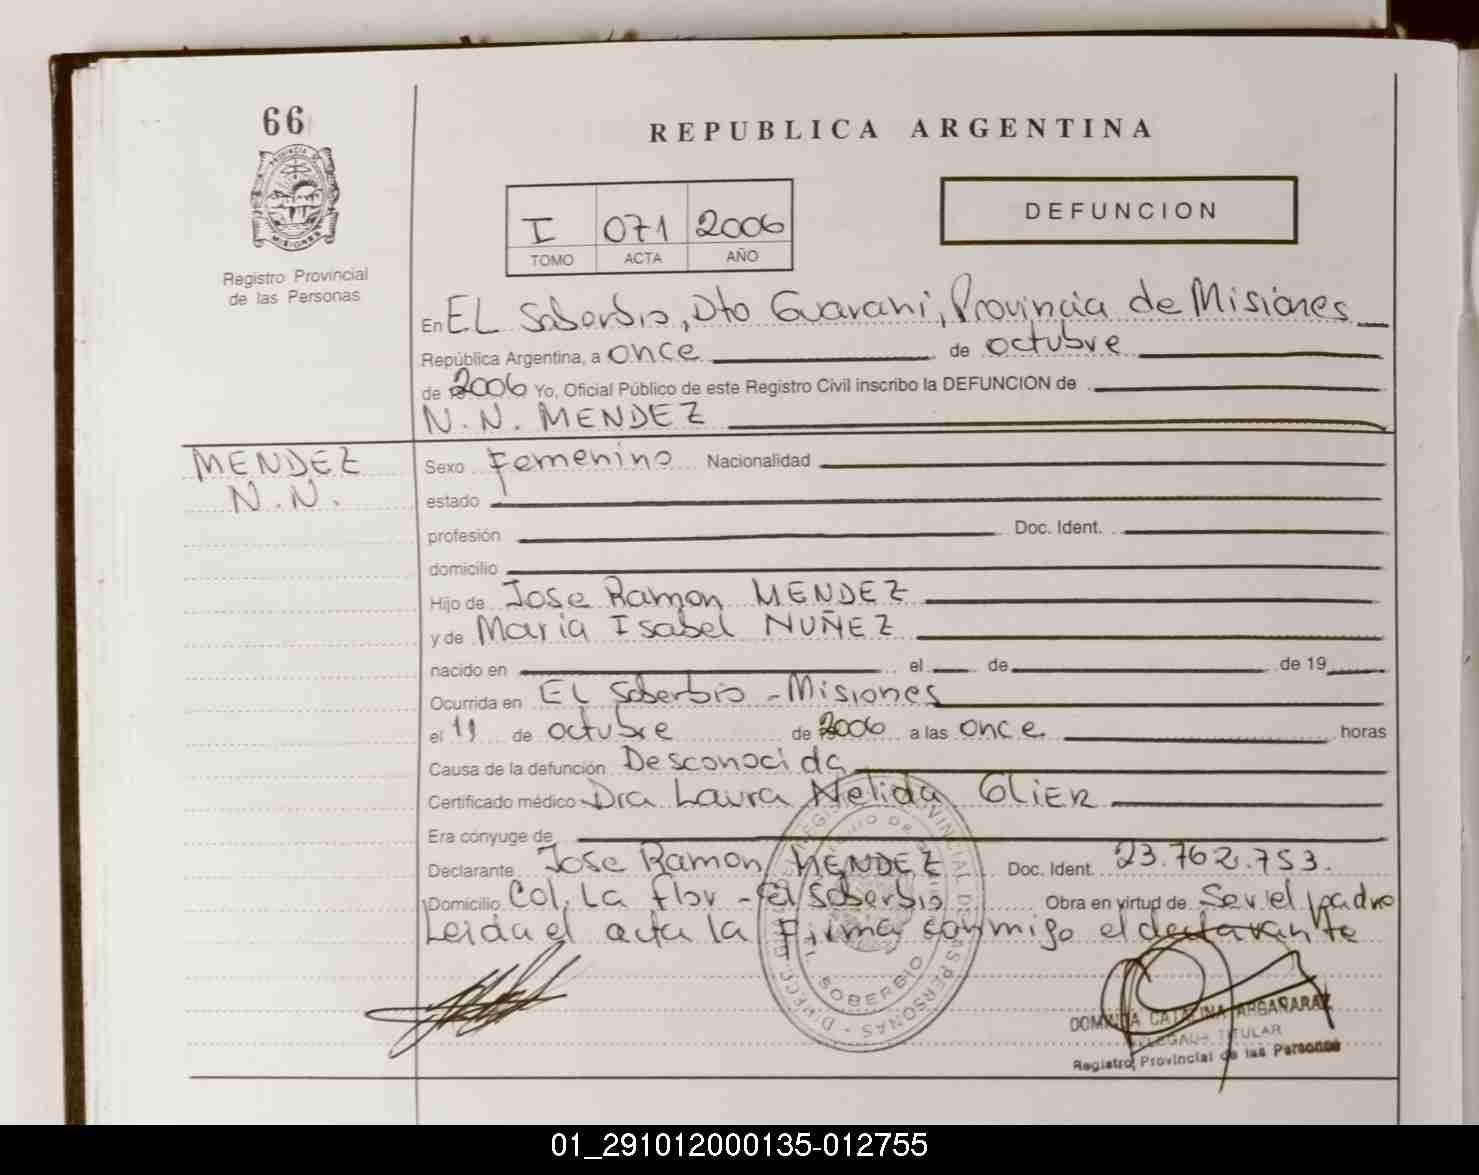 66
REPUBLICA ARGENTINA
PROVINCIA DE
MISIONES
Registro Provincial
de las Personas
I 071 2006
TOMO ACTA AÑO
DEFUNCION
En EL Soberbio, Dto Guarani, Provincia de Misiones
República Argentina, a once de octubre
de 2006 Yo, Oficial Público de este Registro Civil inscribo la DEFUNCION de
N.N. MENDEZ
MENDEZ
N.N.
Sexo Femenino Nacionalidad
estado
profesión Doc. Ident.
domicilio
Hijo de Jose Ramon MENDEZ
y de Maria Isabel NUÑEZ
nacido en el de de 19
Ocurrida en EL Soberbio - Misiones
el 11 de octubre de 2006 a las once horas
Causa de la defunción Desconocida
Certificado médico Dra Laura Nelida GLIER
Era cónyuge de
Declarante Jose Ramon MENDEZ Doc. Ident. 23.762.753.
Domicilio Col. La flor - El Soberbio Obra en virtud de Ser el padre
Leida el acta la Firma conmigo el declarante
SOBERBIO
CATALINA ARGAÑARAZ
DELEGADA TITULAR
Registro Provincial de las Personas
01_291012000135-012755